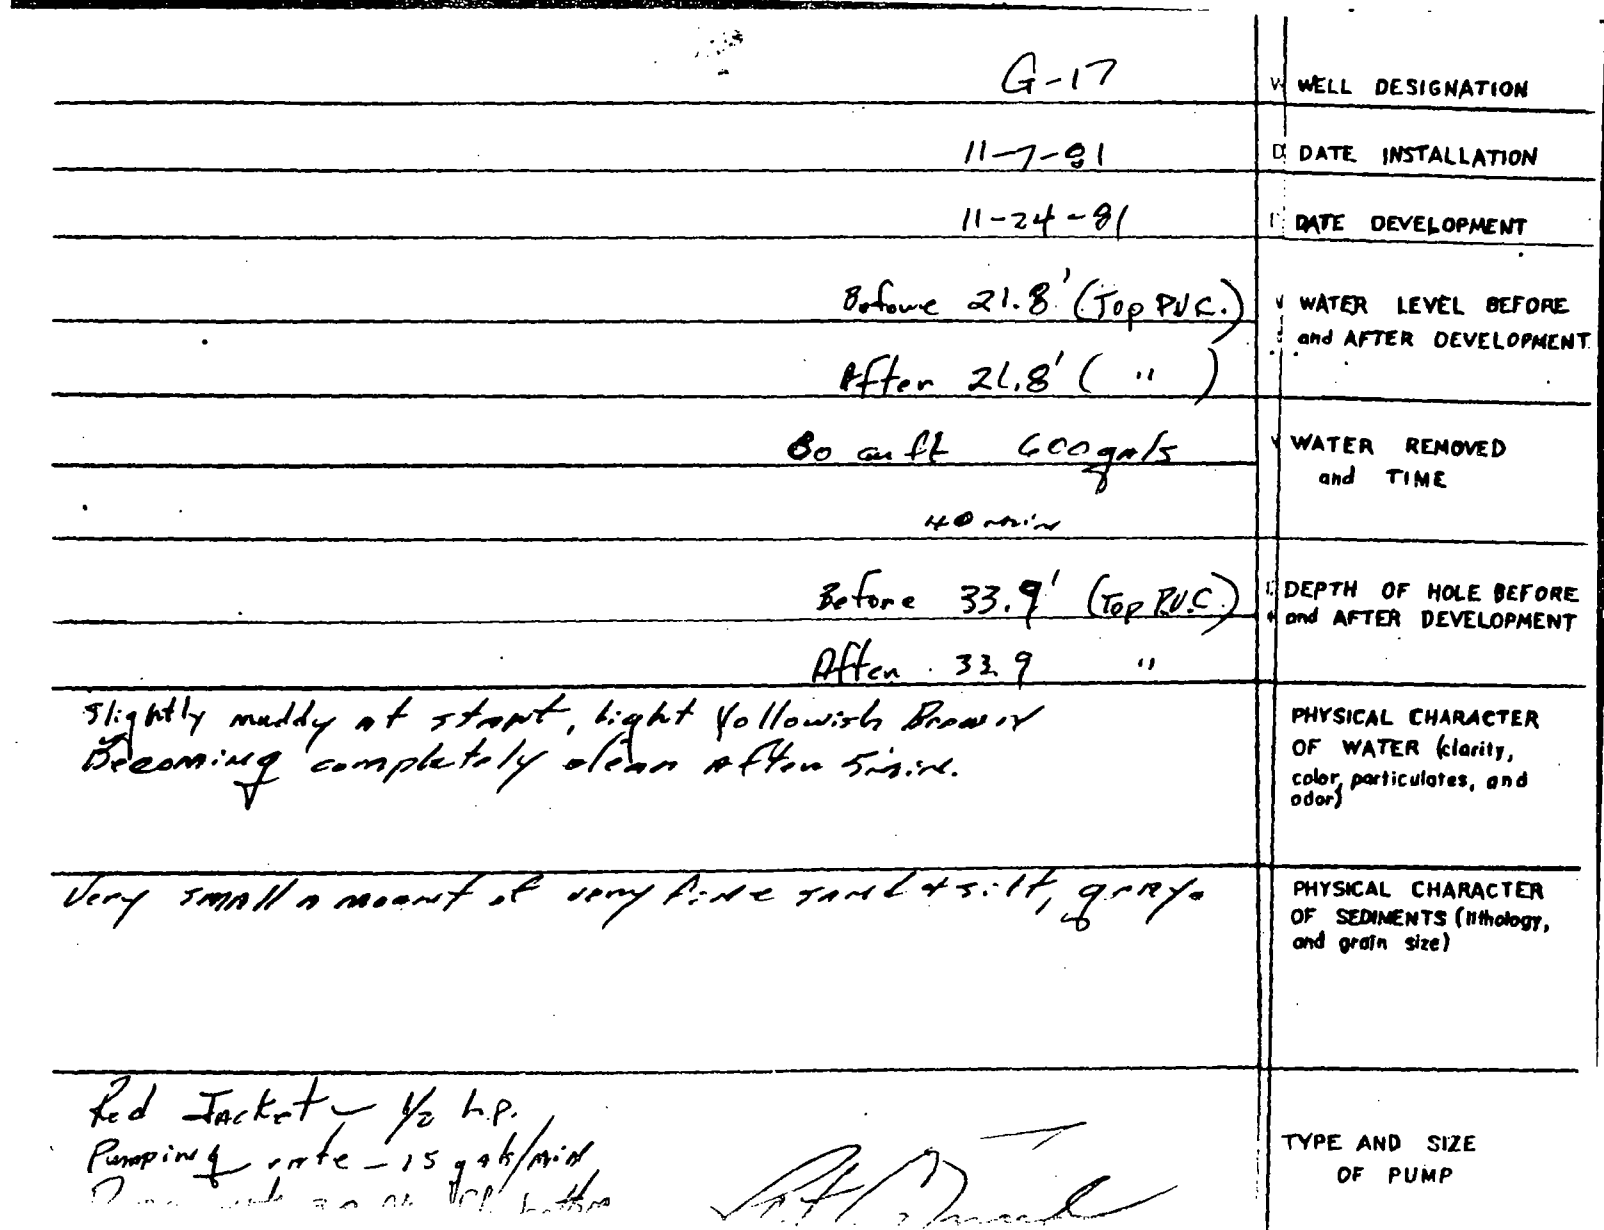 G-17 WELL DESIGNATION
11-7-81 DATE INSTALLATION
11-24-81 DATE DEVELOPMENT
Before 21.8' (Top P.V.C.) WATER LEVEL BEFORE
and AFTER DEVELOPMENT
After 21.8' ( " )
80 cu ft 600 gals WATER REMOVED
and TIME
40 min
Before 33.9' (Top P.V.C.) DEPTH OF HOLE BEFORE
and AFTER DEVELOPMENT
After 33.9 "
Slightly muddy at start, light Yellowish Brown
Becoming completely clear After 5 min.
PHYSICAL CHARACTER
OF WATER (clarity,
color, particulates, and
odor)
Very small amount of very fine sand & silt, gray.
PHYSICAL CHARACTER
OF SEDIMENTS (lithology,
and grain size)
Red Jacket - 1/2 h.p.
Pumping rate - 15 gals/min
TYPE AND SIZE
OF PUMP